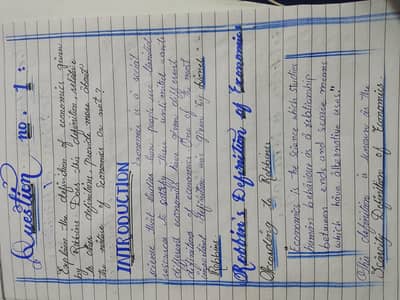 Question no. 1:
Explain the definition of economics given
by Robbins. Does this definition, relative
to other definitions provide more about
the nature of economics or not?
INTRODUCTION
Economics is a social
science that studies how people use limited
resources to satisfy their unlimited wants
different economists have given different
definitions of economics. One of the most
important definition was given by Lionel
Robbins.
Robbin's Definition of Economics
According to Robbins:
"Economics is the science which studies
human behaviour as a relationship
between ends and scarce means
which have alternative uses."
This definition is known as the
Scarcity Definition of Economics.